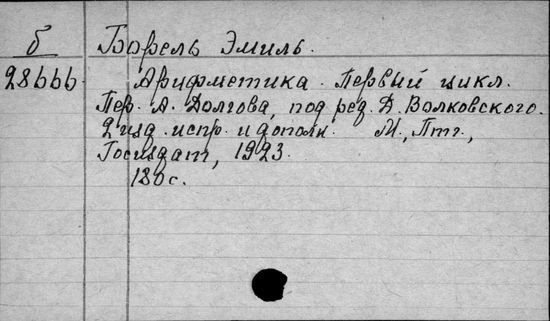 б Борель Эмиль.
28ььь. Арифметика. Первый цикл.
Пер. А. Долгова, под ред. Д. Волковского.
2 изд. испр. и дополн. М., Птг.,
Госиздат, 1923.
180 с.